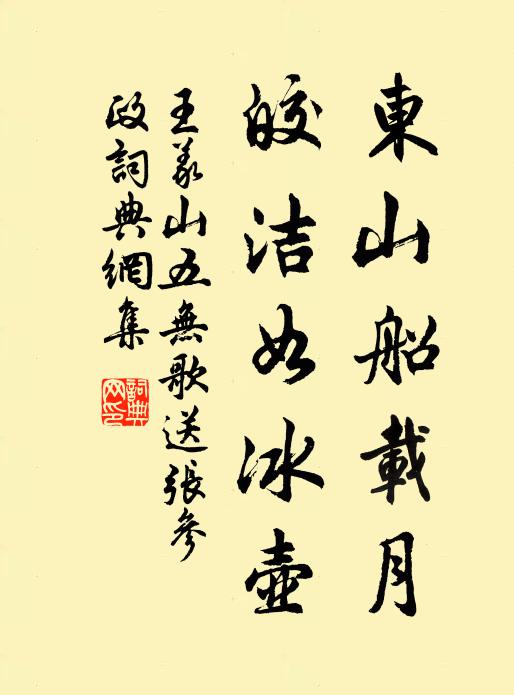 東山船載月
皎洁如冰壺
王義山五無歌送張參
政詞典網集
詞典网印